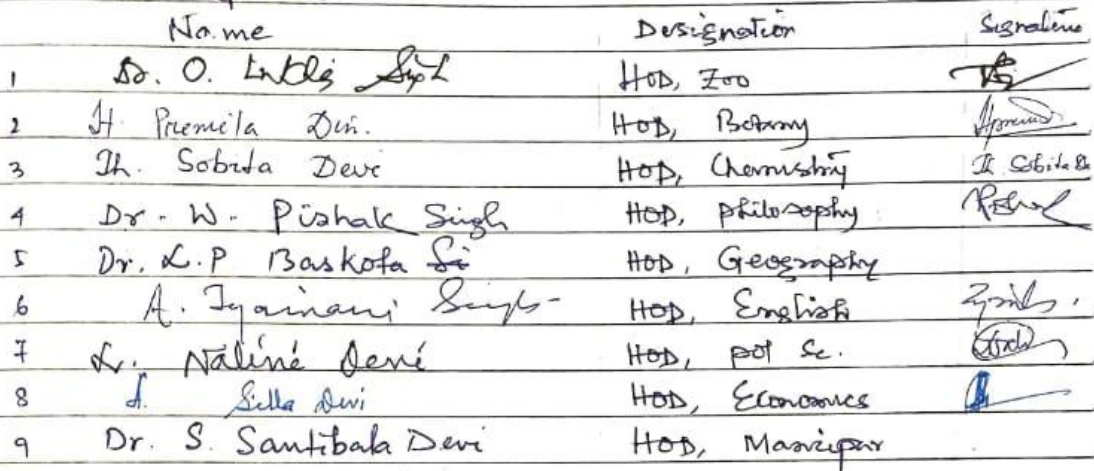 Name Designation Signature
1 Dr. O. Singh HOD, Zoo
2 H. Premila Devi. HOD, Botany
3 Th. Sobita Devi HOD, Chemistry Th. Sobita De
4 Dr. W. Pishak Singh HOD, Philosophy
5 Dr. L.P Baskota HOD, Geography
6 A. Singh HOD, English
7 L. Naliné Devi HOD, pol Sc.
8 Silla Devi HOD, Economics
9 Dr. S. Santibala Devi HOD, Manipur